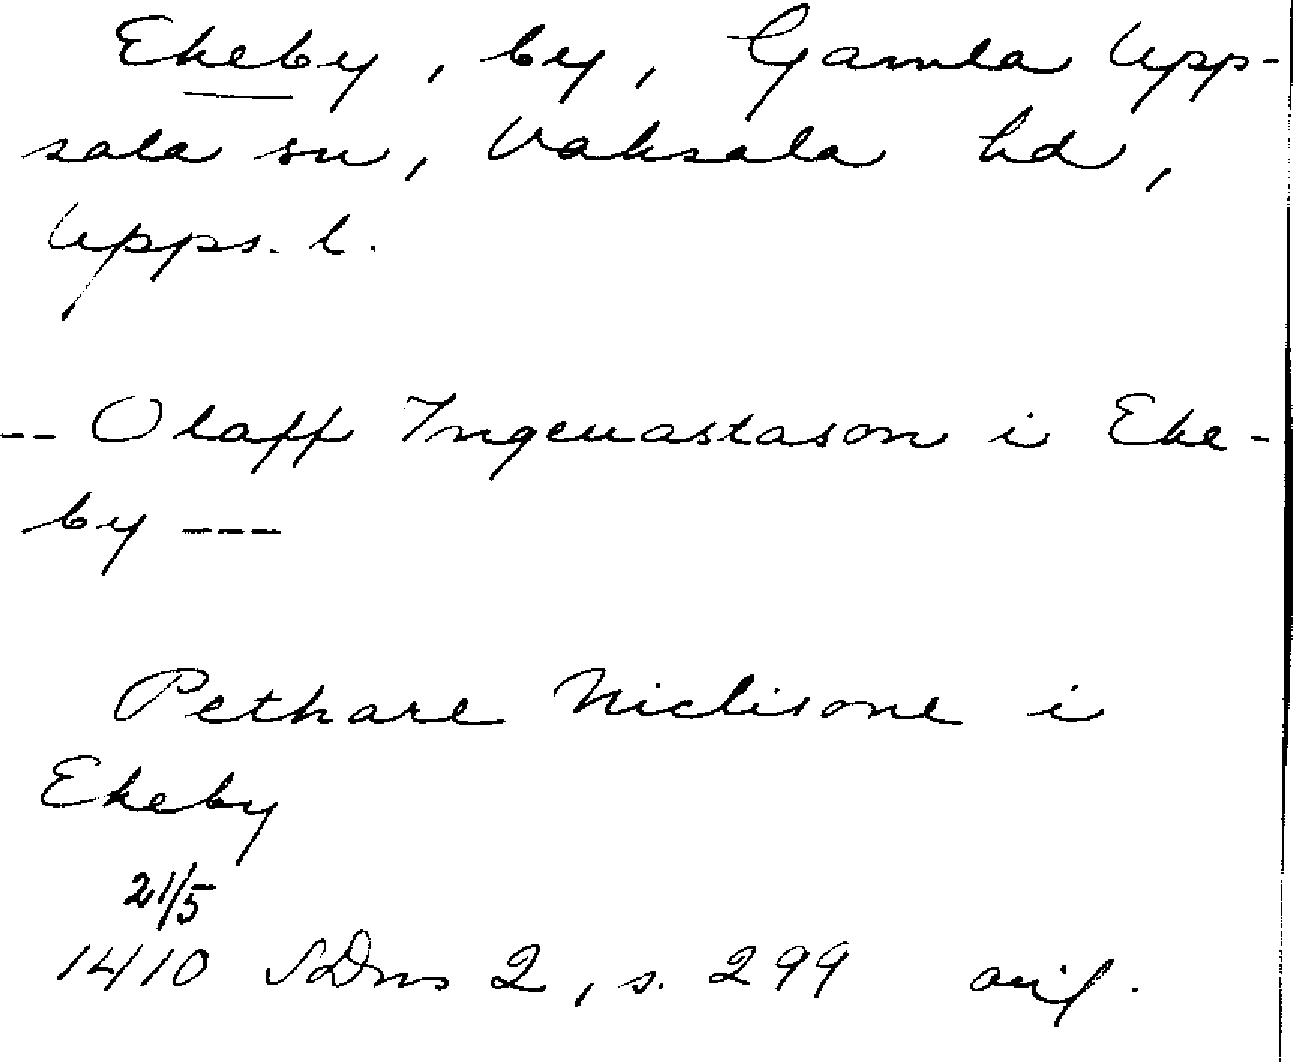 Ekeby, by, Gamla Upp-
sala sn, Vaksala hd,
Upps. l.
-- Olaff Ingeuastason i Eke-
by ---
Pethare Niclisone i
Ekeby
21/5
1410 SDns 2, s. 299